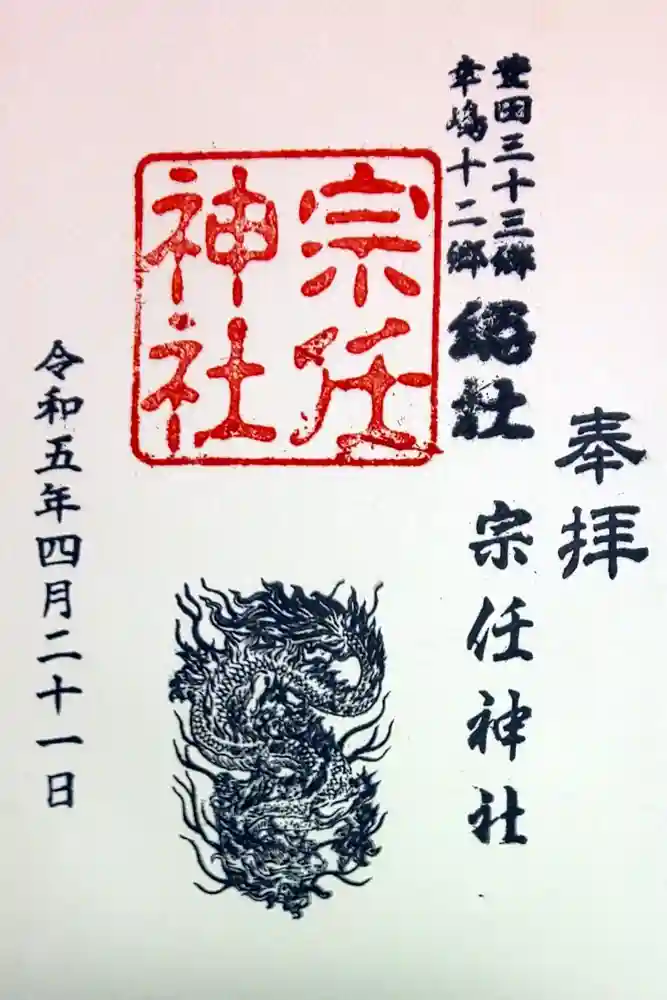 奉拝
豊田三十三郷
幸嶋十二郷
総社 宗任神社
宗任
神社
令和五年四月二十一日